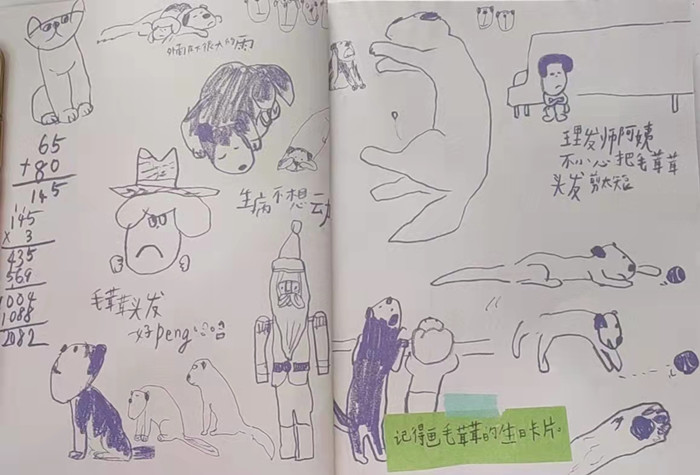 外面下很大的雨
65
+80
145
145
x 3
435
569
1004
1088
2082
生病不想动
毛茸茸头发
好peng
理发师阿姨
不小心把毛茸茸
头发剪太短
记得画毛茸茸的生日卡片。